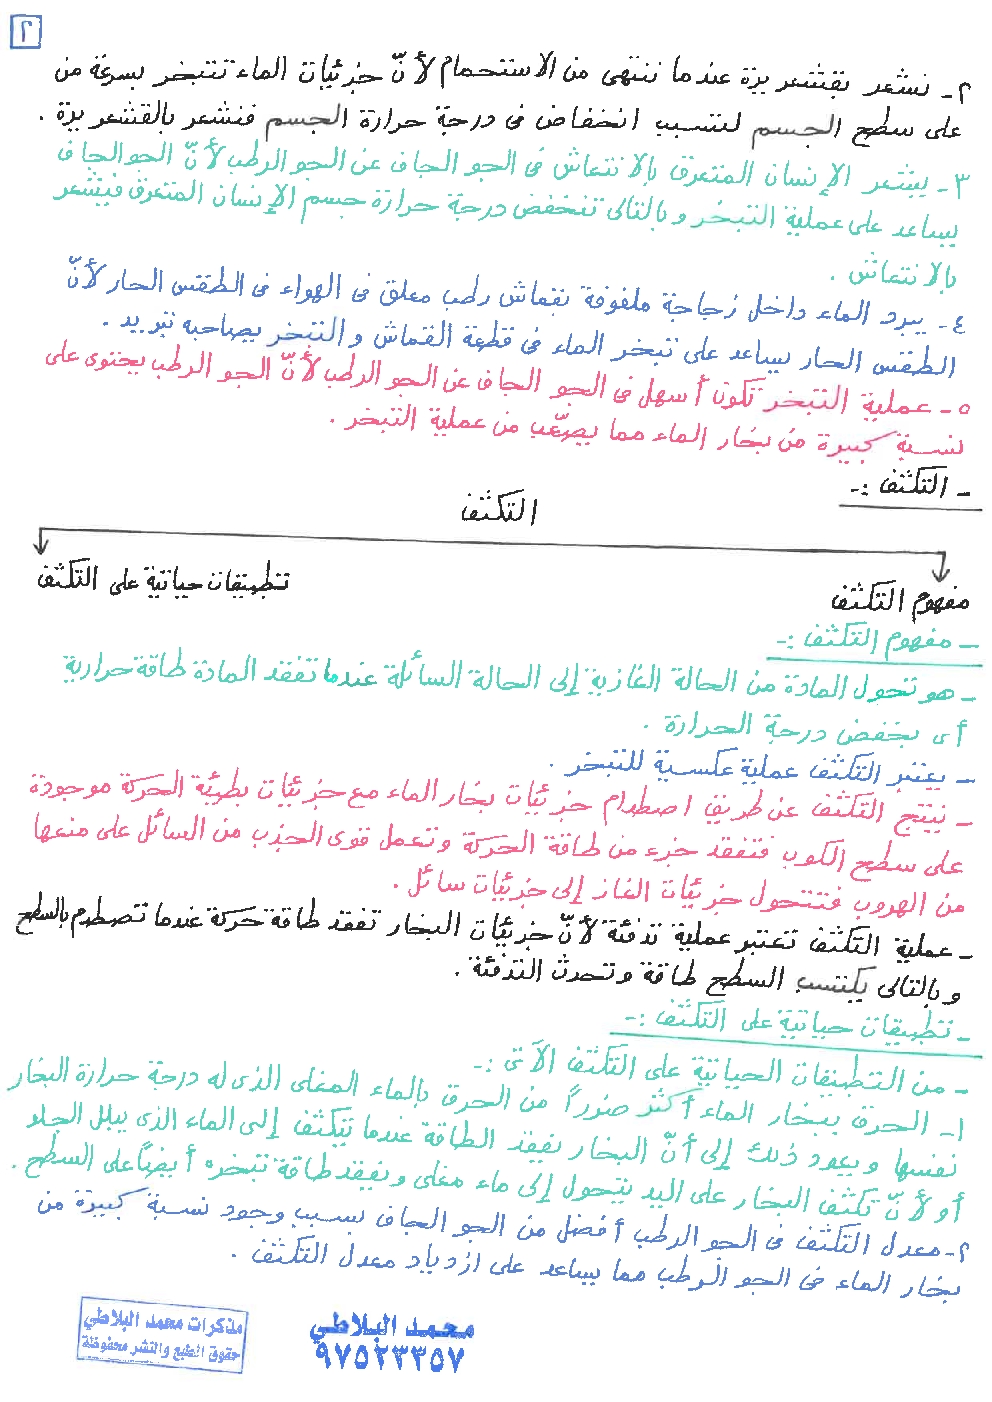 ٢
٢- نشعر بقشعريرة عندما ننتهى من الاستحمام لأنّ جزيئات الماء تتبخر بسرعة من
على سطح الجسم لتسبب انخفاض فى درجة حرارة الجسم فنشعر بالقشعريرة .
٣- يشعر الإنسان المتعرق بالانتعاش فى الجو الجاف عن الجو الرطب لأنّ الجو الجاف
يساعد على عملية التبخر وبالتالى تنخفض درجة حرارة جسم الإنسان المتعرق فيشعر
بالانتعاش .
٤- يبرد الماء داخل زجاجة ملفوفة بقماش رطب معلق فى الهواء فى الطقس الحار لأنّ
الطقس الحار يساعد على تبخر الماء فى قطعة القماش والتبخر يصاحبه تبريد .
٥- عملية التبخر تكون أسهل فى الجو الجاف عن الجو الرطب لأنّ الجو الرطب يحتوى على
نسبة كبيرة من بخار الماء مما يصعّب من عملية التبخر .
- التكثف :-
التكثف
مفهوم التكثف
تطبيقات حياتية على التكثف
- مفهوم التكثف :-
- هو تحول المادة من الحالة الغازية إلى الحالة السائلة عندما تفقد المادة طاقة حرارية
أى بخفض درجة الحرارة .
- يعتبر التكثف عملية عكسية للتبخر .
- ينتج التكثف عن طريق اصطدام جزيئات بخار الماء مع جزيئات بطيئة الحركة موجودة
على سطح الكوب فتفقد جزء من طاقة الحركة وتعمل قوى الجذب من السائل على منعها
من الهروب فتتحول جزيئات الغاز إلى جزيئات سائل .
- عملية التكثف تعتبر عملية تدفئة لأنّ جزيئات البخار تفقد طاقة حركة عندما تصطدم بالسطح
وبالتالى يكتسب السطح طاقة وتحدث التدفئة .
- تطبيقات حياتية على التكثف :-
- من التطبيقات الحياتية على التكثف الآتى :-
١- الحرق ببخار الماء أكثر ضرراً من الحرق بالماء المغلى الذى له درجة حرارة البخار
نفسها ويعود ذلك إلى أنّ البخار يفقد الطاقة عندما يتكثف إلى الماء الذى يبلل الجلد
أو لأنّ تكثف البخار على اليد يتحول إلى ماء مغلى ويفقد طاقة تبخره أيضاً على السطح .
٢- معدل التكثف فى الجو الرطب أفضل من الجو الجاف بسبب وجود نسبة كبيرة من
بخار الماء فى الجو الرطب مما يساعد على ازدياد معدل التكثف .
محمد البلاطي
٩٧٥٢٣٣٥٧
مذكرات محمد البلاطي
حقوق الطبع والنشر محفوظة